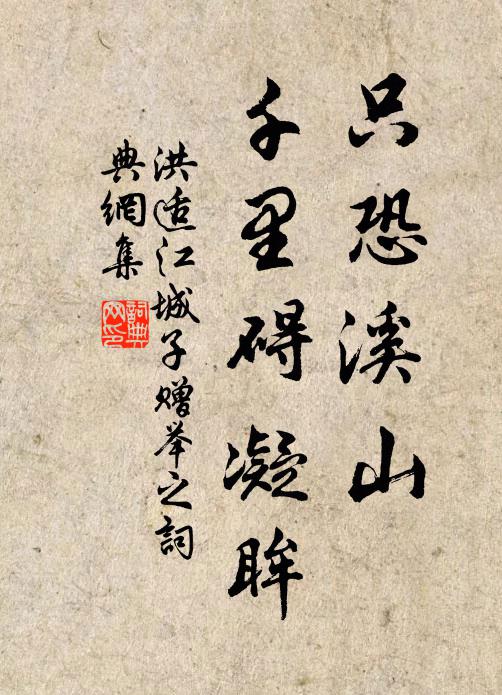 只恐溪山
千里碍凝眸
洪适江城子赠举之詞
典網集
詞典
网印